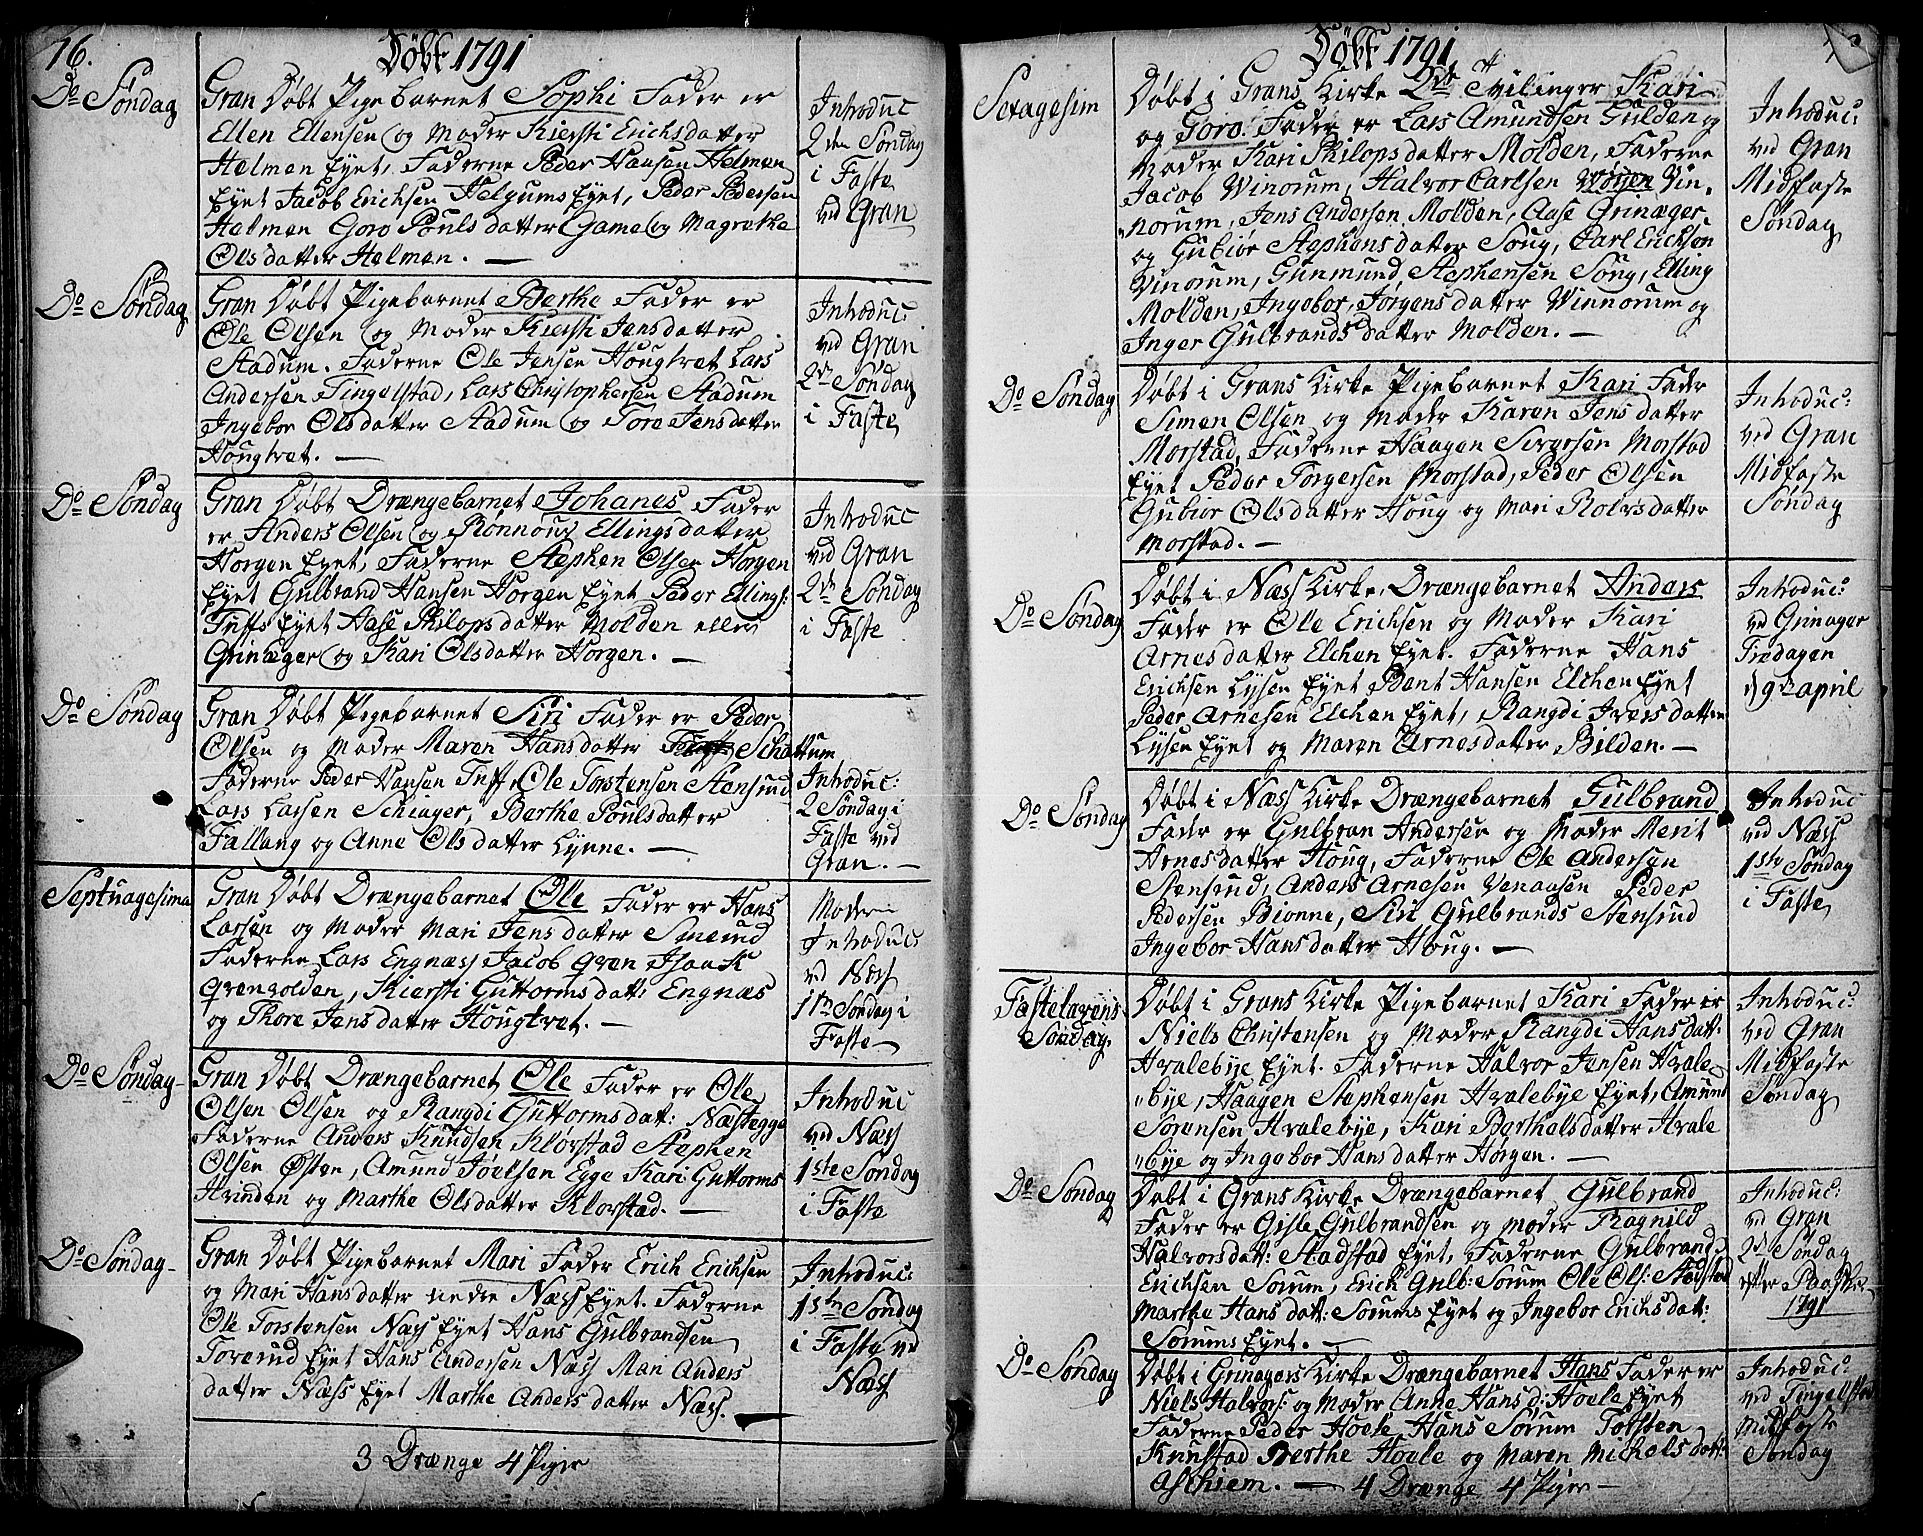 76.
Døbt 1791
Do Søndag
Gran Døbt Pigebarnet Sophi Fader er
Ellen Ellensen og Moder Kiersti Erichsdatter
Helmen Eyet, Faderne Peder Hansen Helmen
Eyet Jacob Erichsen Helgums Eyet, Peder Pedersen
Helmen Goro Pouls datter Game og Magrethe
Olsdatter Helmen. —
Introduc
2den Søndag
i Faste
ved Gran
Do Søndag
Gran Døbt Pigebarnet Berthe Fader er
Ole Olsen og Moder Kiersti Jensdatter
Stadum. Faderne Ole Jensen Hougtvet Lars
Andersen Tingelstad, Lars Christophersen Stadum
Ingebor Olsdatter Stadum og Tore Jensdatter
Hougtvet. —
Introduc:
ved Gran
2de Søndag
i Faste
Do Søndag
Gran Døbt Drængebarnet Johanes Fader
er Anders Olsen og Ronnoug Ellingsdatter
Horgen Eyet, Faderne Stephen Olsen Horgen
Eyet Gulbrand Hansen Horgen Eyet Peder Ellings:
Tuffs Eyet Aase Philops datter Molden eller
Grinæger og Kari Olsdatter Horgen. —
Introduc
ved Gran
2de Søndag
i Faste
Do Søndag
Gran Døbt Pigebarnet Siri Fader er Peder
Olsen og Moder Maren Hansdatter Schattum
Faderne Peder Hansen Tuff Ole Torstensen Stensrud
Lars Larsen Schiager, Berthe Poulsdatter
Fallang og Anne Olsdatter Lynne. —
Introduc:
2 Søndag i
Faste ved
Gran. —
Septuagesima
Gran Døbt Drængebarnet Ole Fader er Hans
Larsen og Moder Mari Jens datter Smerud
Faderne Lars Engnæs Jacob Gren Isaak
Grengolden, Kiersti Guttorms datt: Engnæs
og Thore Jensdatter Hougtvet. —
Moder
Introduc:
ved Næss
1ste Søndag i
Faste
Do Søndag
Gran Døbt Drængebarnet Ole Fader er Ole
Olsen Olsen og Rangdi Guttormsdatt: Næsteggen
Faderne Anders Knudsen Klørstad Stephen
Olsen Østen, Amund Joelsen Egge Kari Guttorms
Hvinden og Marthe Olsdatter Klorstad. —
Introduc
ved Næss
1ste Søndag
i Faste
Do Søndag
Gran Døbt Pigebarnet Mari Fader Erich Erichsen
og Mari Hansdatter nedre Næss Eyet. Faderne
Ole Torstensen Næss Eyet Hans Gulbrandsen
Toverud Eyet Hans Andersen Næss Mari Anders
datter Næss Eyet Marthe Anders datter Næss.
Introduc:
1ste Søndag
i Faste ved
Næss
3 Drænge 4 Piger
Døbt 1791
Sexagesim
Døbt i Grans Kirke 2de Tvilinger Kari
og Goro. Fader er Lars Amundsen Gulden og
Moder Kari Philops datter Molden, Faderne
Jacob Winorum, Halvor Carlsen Vin-
norum, Jens Andersen Molden, Aase Grinæger,
og Gubiør Stephensdatter Soug, Carl Erichsen
Vinorum, Gunmund Stephensen Soug, Elling
Molden, Ingebor Jørgensdatter Vinnorum og
Inger Gulbrands datter Molden. —
Introduc:
ved Gran
Midfaste
Søndag
Do Søndag
Døbt i Grans Kirke Pigebarnet Kari Fader
Simen Olsen og Moder Karen Jensdatter
Morstad, Faderne Haagen Siversen Morstad
Eyet Peder Torgersen Morstad, Peder Olsen
Gubior Olsdatter Houg og Mari Rolvsdatter
Morstad. —
Introduc:
ved Gran
Midfaste
Søndag
Do Søndag
Døbt i Næss Kirke, Drængebarnet Anders
Fader er Ole Erichsen og Moder Kari
Arnesdatter Elchen Eyet. Faderne Hans
Erichsen Lysen Eyet Pent Hansen Elchen Eyet
Peder Arnesen Elchen Eyet, Rangdi Ivers datter
Lysen Eyet og Maren Arnesdatter, Bilden. —
Introduc:
ved Grinager
Fredagen
d 9de april
Do Søndag
Døbt i Næss Kirke Drængebarnet Gulbrand
Fader er Gulbran Andersen og Moder Merit
Arnesdatter Houg, Faderne Ole Andersen
Stensrud, Anders Arnesen Venaasen Peder
Pedersen Bionne, Siri Gulbrands Stensrud
Ingebor Hansdatter Houg. —
Introduc
ved Næss
1ste Søndag
i Faste
Fastelavens
Søndag.
Døbt i Grans Kirke Pigebarnet Kari Fader er
Niels Christensen og Moder Rangdi Hansdatt:
Hvalebye Eyet. Faderne Halvor Jensen Hvale
bye, Haagen Stephensen Hvalebye Eyet, Amund
Sørensen Hvalebye, Kari Berthelsdatter Hvale
bye og Ingebor Hansdatter Horgen. —
Introduc:
ved Gran
Midfaste
Søndag
Do Søndag
Døbt i Grans Kirke Drængebarnet Gulbrand
Fader er Gisle Gulbrandsen og Moder Ragnild
Halvorsdatt: Stadstad Eyet, Faderne Gulbrand
Erichsen Sorum, Erich Gulb: Sorum Ole Ols: Stadstad
Marthe Hans datt: Sorums Eyet og Ingebor Erichsdatt:
Sorums Eyet. —
Introduc:
ved Gran
2de Søndag
efter Paaske
1791
Do Søndag
Døbt i Grinagers Kirke Drængebarnet Hans Fader er
Niels Halvors: og Moder Anne Hans d: Hoele Eyet
Faderne Peder Hoele Hans Sørum Torsten
Knustad Berthe Hoele og Maren Michelsdatt:
Aschiem. — 4 Drænge 4 Piger —
Introduc:
ved Tingelstad
Midfaste
Søndag